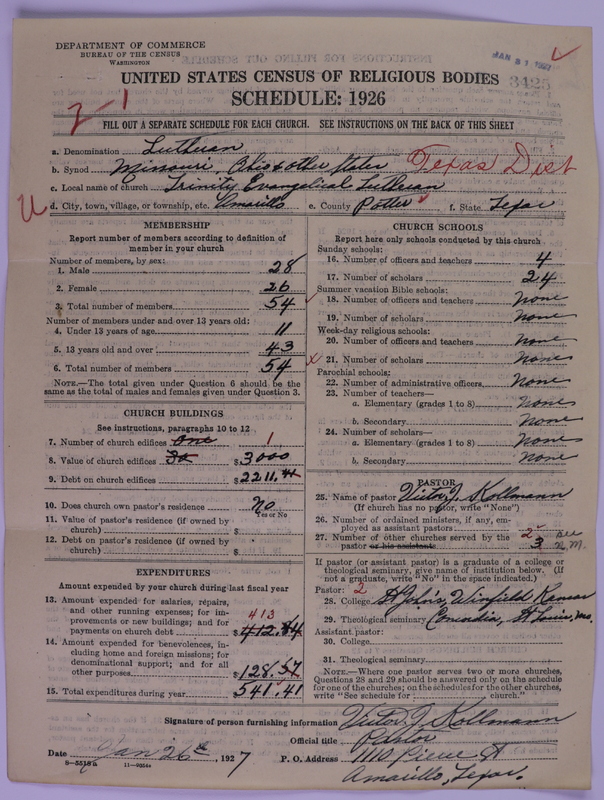 DEPARTMENT OF COMMERCE
BUREAU OF THE CENSUS
WASHINGTON
JAN 31 1927
3425
UNITED STATES CENSUS OF RELIGIOUS BODIES
SCHEDULE: 1926
2-1
FILL OUT A SEPARATE SCHEDULE FOR EACH CHURCH. SEE INSTRUCTIONS ON THE BACK OF THIS SHEET
a. Denomination Lutheran
b. Synod Missouri, Ohio & other States Texas Dist
c. Local name of church Trinity Evangelical Lutheran
d. City, town, village, or township, etc. Amarillo e. County Potter f. State Texas
MEMBERSHIP
Report number of members according to definition of
member in your church
Number of members, by sex:
1. Male 28
2. Female 26
3. Total number of members 54
Number of members under and over 13 years old:
4. Under 13 years of age 11
5. 13 years old and over 43
6. Total number of members 54
NOTE.—The total given under Question 6 should be the
same as the total of males and females given under Question 3.
CHURCH BUILDINGS
See instructions, paragraphs 10 to 12
7. Number of church edifices One 1
8. Value of church edifices $3000
9. Debt on church edifices $2211.41
10. Does church own pastor's residence No
Yes or No
11. Value of pastor's residence (if owned by
church) $
12. Debt on pastor's residence (if owned by
church) $
EXPENDITURES
Amount expended by your church during last fiscal year
13. Amount expended for salaries, repairs,
and other running expenses; for im-
provements or new buildings; and for 413
payments on church debt $412.84
14. Amount expended for benevolences, in-
cluding home and foreign missions; for
denominational support; and for all
other purposes $128.57
15. Total expenditures during year $541.41
CHURCH SCHOOLS
Report here only schools conducted by this church
Sunday schools:
16. Number of officers and teachers 4
17. Number of scholars 24
Summer vacation Bible schools:
18. Number of officers and teachers None
19. Number of scholars None
Week-day religious schools:
20. Number of officers and teachers None
21. Number of scholars None
Parochial schools:
22. Number of administrative officers None
23. Number of teachers—
a. Elementary (grades 1 to 8) None
b. Secondary None
24. Number of scholars—
a. Elementary (grades 1 to 8) None
b. Secondary None
PASTOR
25. Name of pastor Victor J. Kollmann
(If church has no pastor, write "None")
26. Number of ordained ministers, if any, em-
ployed as assistant pastors
27. Number of other churches served by the 2 see
pastor or his assistants 3 N.M.
If pastor (or assistant pastor) is a graduate of a college or
theological seminary, give name of institution below. (If
not a graduate, write "No" in the space indicated.)
Pastor: 2
28. College St John's, Winfield Kansas
29. Theological seminary Concordia, St Louis, Mo.
Assistant pastor:
30. College
31. Theological seminary
NOTE.—Where one pastor serves two or more churches,
Questions 28 and 29 should be answered only on the schedule
for one of the churches; on the schedules for the other churches,
write "See schedule for church."
Signature of person furnishing information Victor J. Kollmann
Official title Pastor
Date Jan 26th, 1927 P. O. Address 1110 Pierce St
S-5518a 11-9354a Amarillo, Texas.